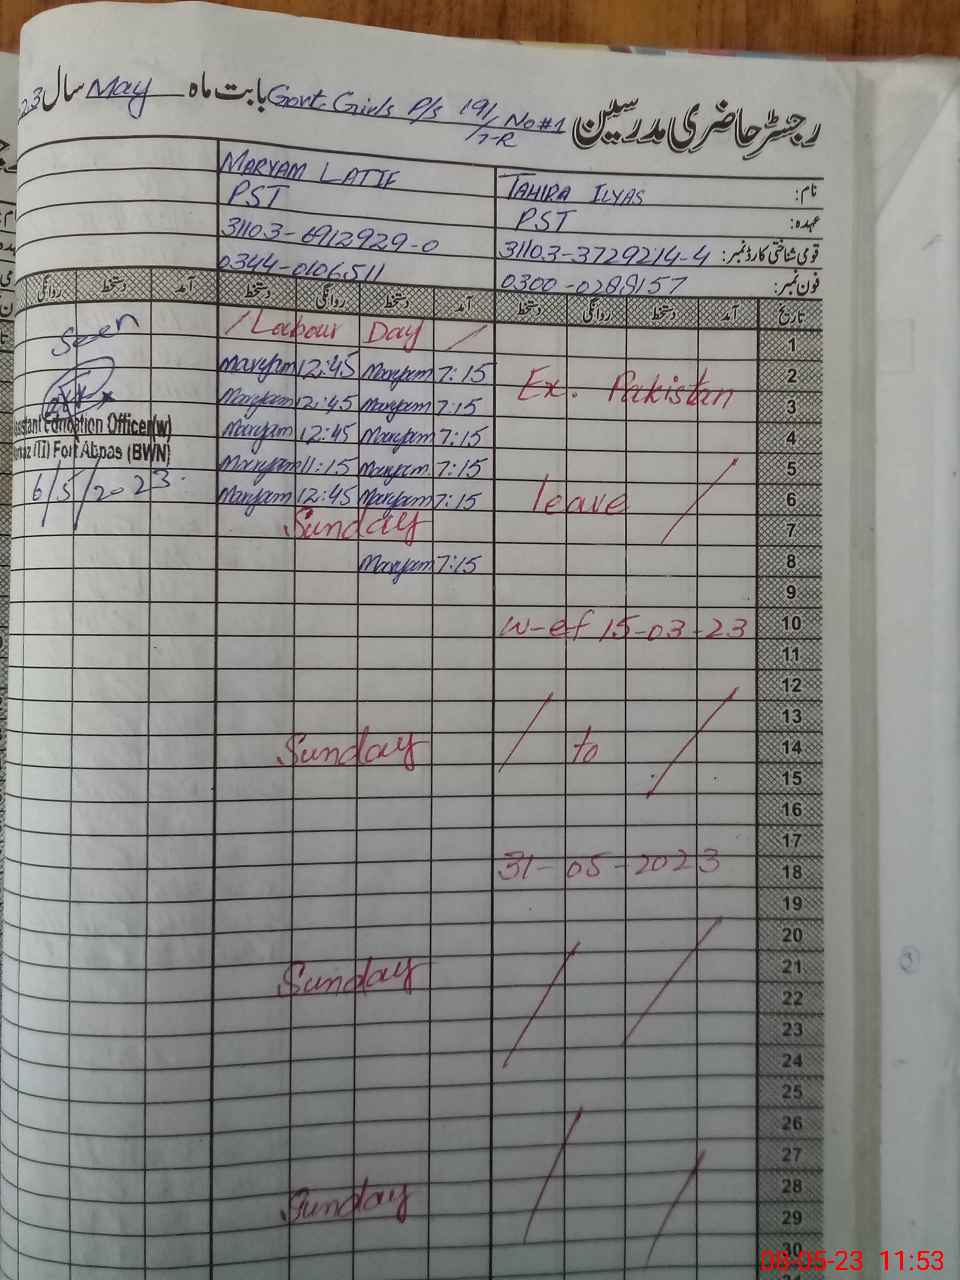 رجسٹر حاضری مدرسین Govt. Girls P/s 191/7-R No#1 بابت ماہ May سال 23
نام: TAHIRA ILYAS MARYAM LATIF
عہدہ: PST PST
قومی شناختی کارڈ نمبر: 31103-3729214-4 31103-6912929-0
فون نمبر: 0300-0288157 0344-0106511
تاریخ آمد دستخط روانگی دستخط آمد دستخط روانگی دستخط آمد دستخط روانگی
1 Labour Day Seen
2 Maryam 12:45 Maryam 7:15
Ex. Pakistan
3 Maryam 12:45 Maryam 7:15
Assistant Education Officer(w)
4 Maryam 12:45 Maryam 7:15
Markaz (IT) Fort Abbas (BWN)
5 Maryam 11:15 Maryam 7:15
6/5/2023
6 leave Maryam 12:45 Maryam 7:15
7 Sunday
8 Maryam 7:15
9
10 W-ef 15-03-23
11
12
13
14 to Sunday
15
16
17
18 31-05-2023
19
20
21 Sunday
22
23
24
25
26
27
28 Sunday
29
30
08-05-23 11:53